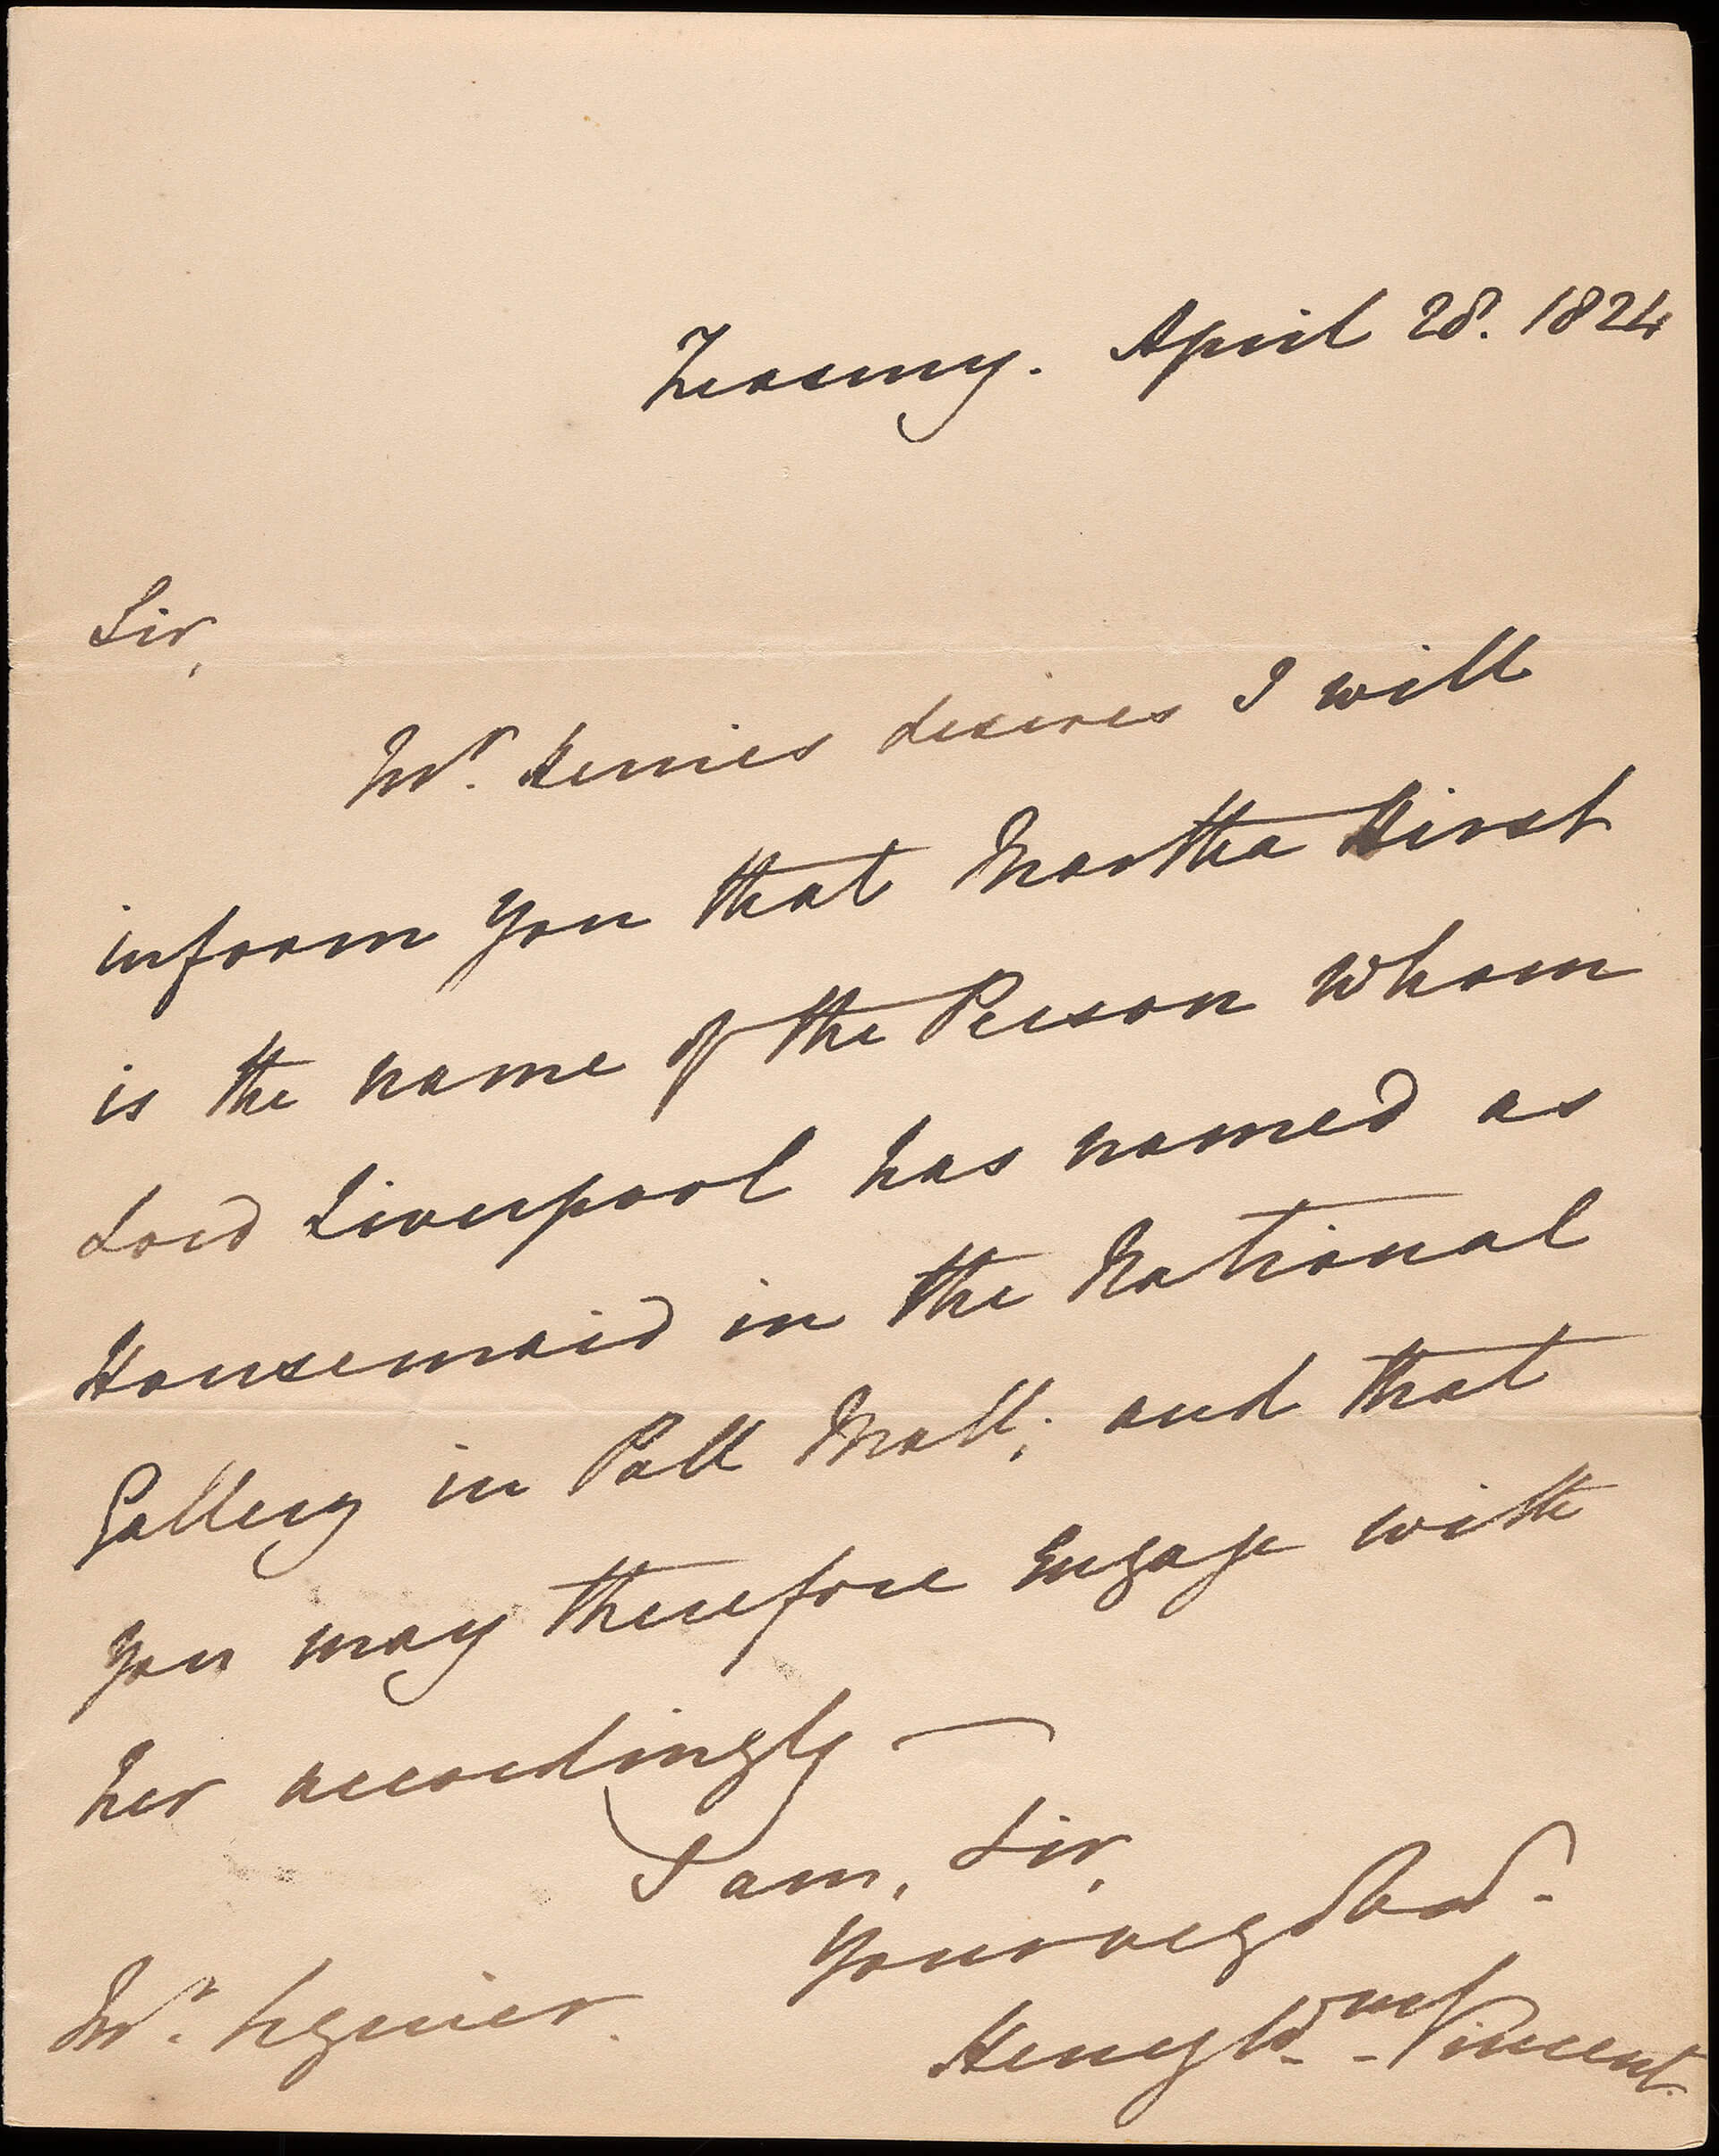 Treasury. April 28. 1824
Sir,
Mr. Herries desires I will
inform you that Martha Hirst
is the name of the Person whom
Lord Liverpool has named as
Housemaid in the National
Gallery in Pall Mall; and that
you may therefore engage with
her accordingly —
I am, Sir,
Your very
Mr. Seguier.
Henry Wm. Vincent.